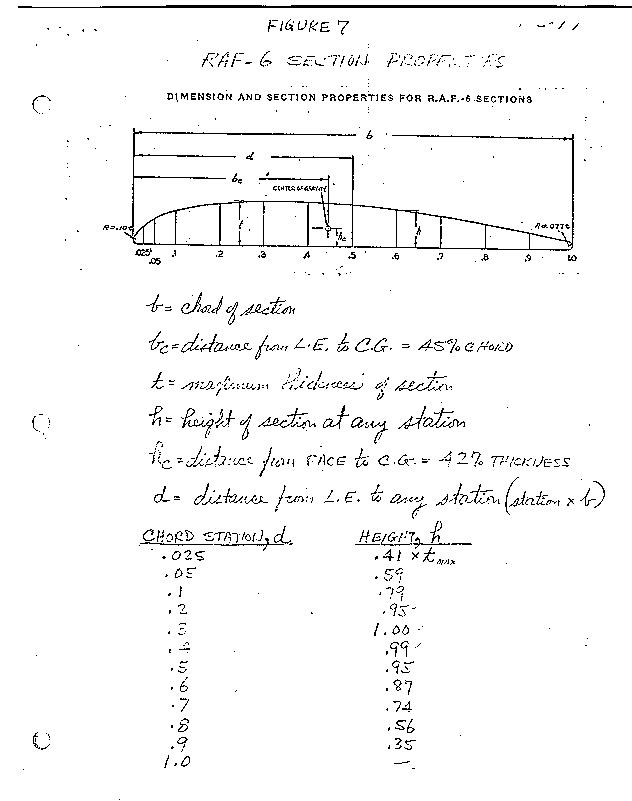 FIGURE 7
RAF-6 SECTION PROPERTIES
DIMENSION AND SECTION PROPERTIES FOR R.A.F.-6 SECTIONS
b
d
bc
CENTER OF GRAVITY
R=.10t t hc h R=.077t
.025 .05 .1 .2 .3 .4 .5 .6 .7 .8 .9 1.0
b = chord of section
bc = distance from L.E. to C.G. = 45% CHORD
t = maximum thickness of section
h = height of section at any station
hc = distance from FACE to C.G. = 42% THICKNESS
d = distance from L.E. to any station (station x b)
CHORD STATION, d. HEIGHT, h
.025 .41 x tmax
.05 .59
.1 .79
.2 .95
.3 1.00
.4 .99
.5 .95
.6 .87
.7 .74
.8 .56
.9 .35
1.0 —